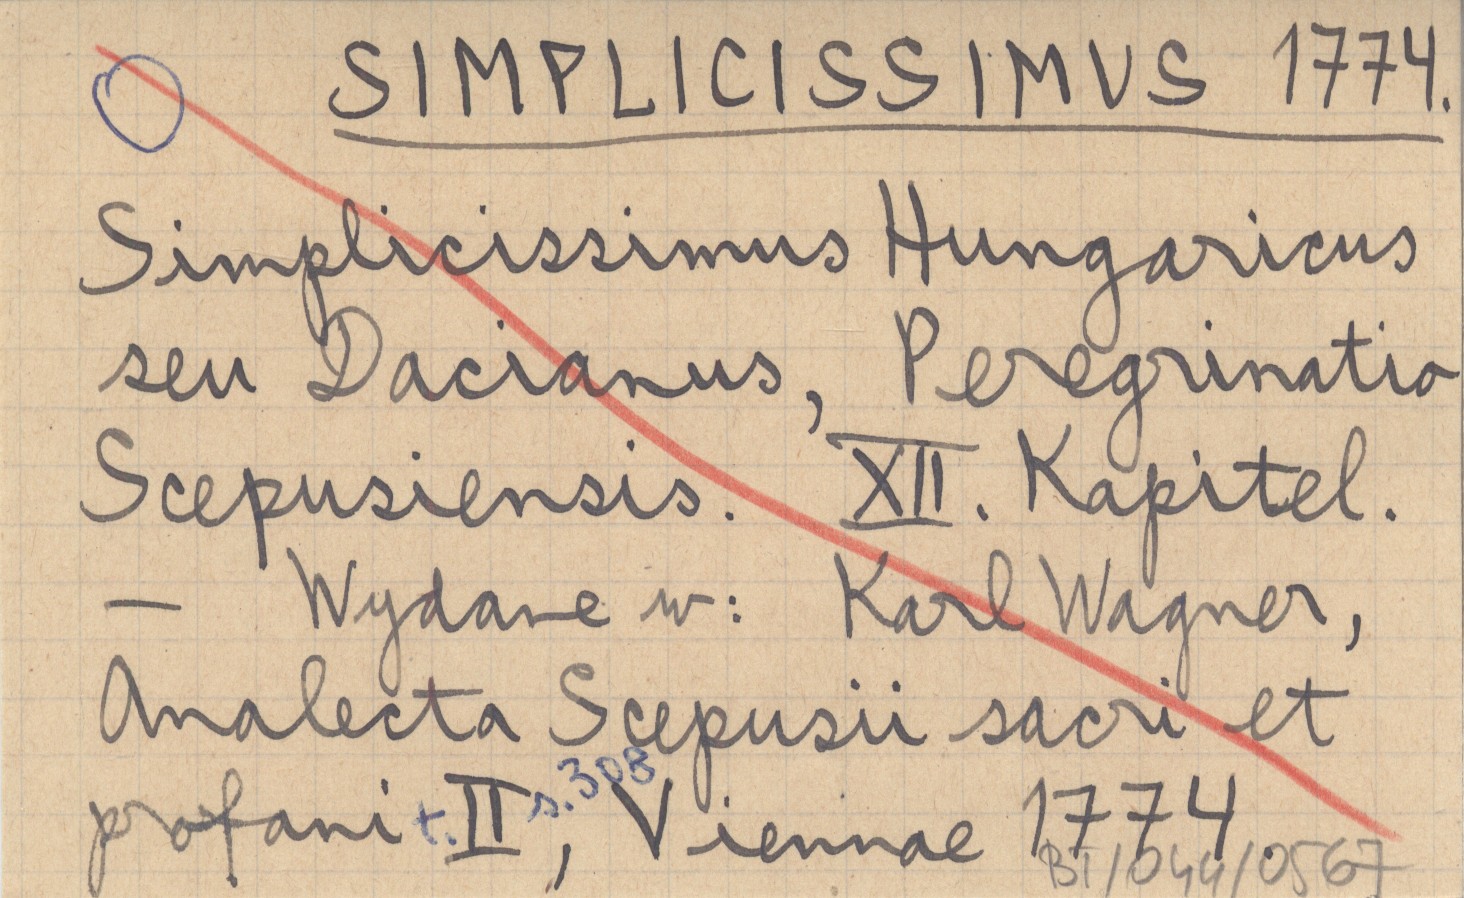 SIMPLICISSIMUS 1774.
Simplicissimus Hungaricus
seu Dacianus, Peregrinatio
Scepusiensis. XII. Kapitel.
— Wydane w: Karl Wagner,
Analecta Scepusii sacri et
profani t. II s. 308, Viennae 1774.
BT/044/0567